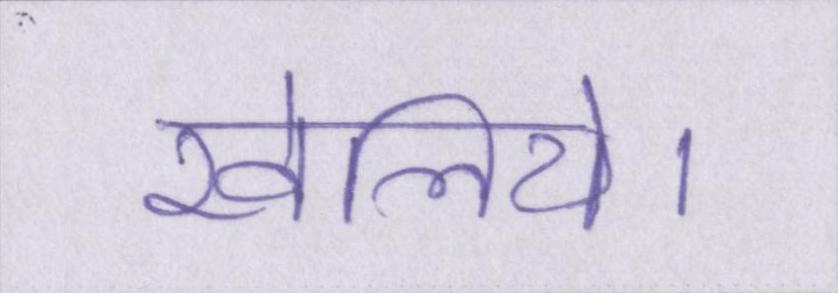 खेलिये।